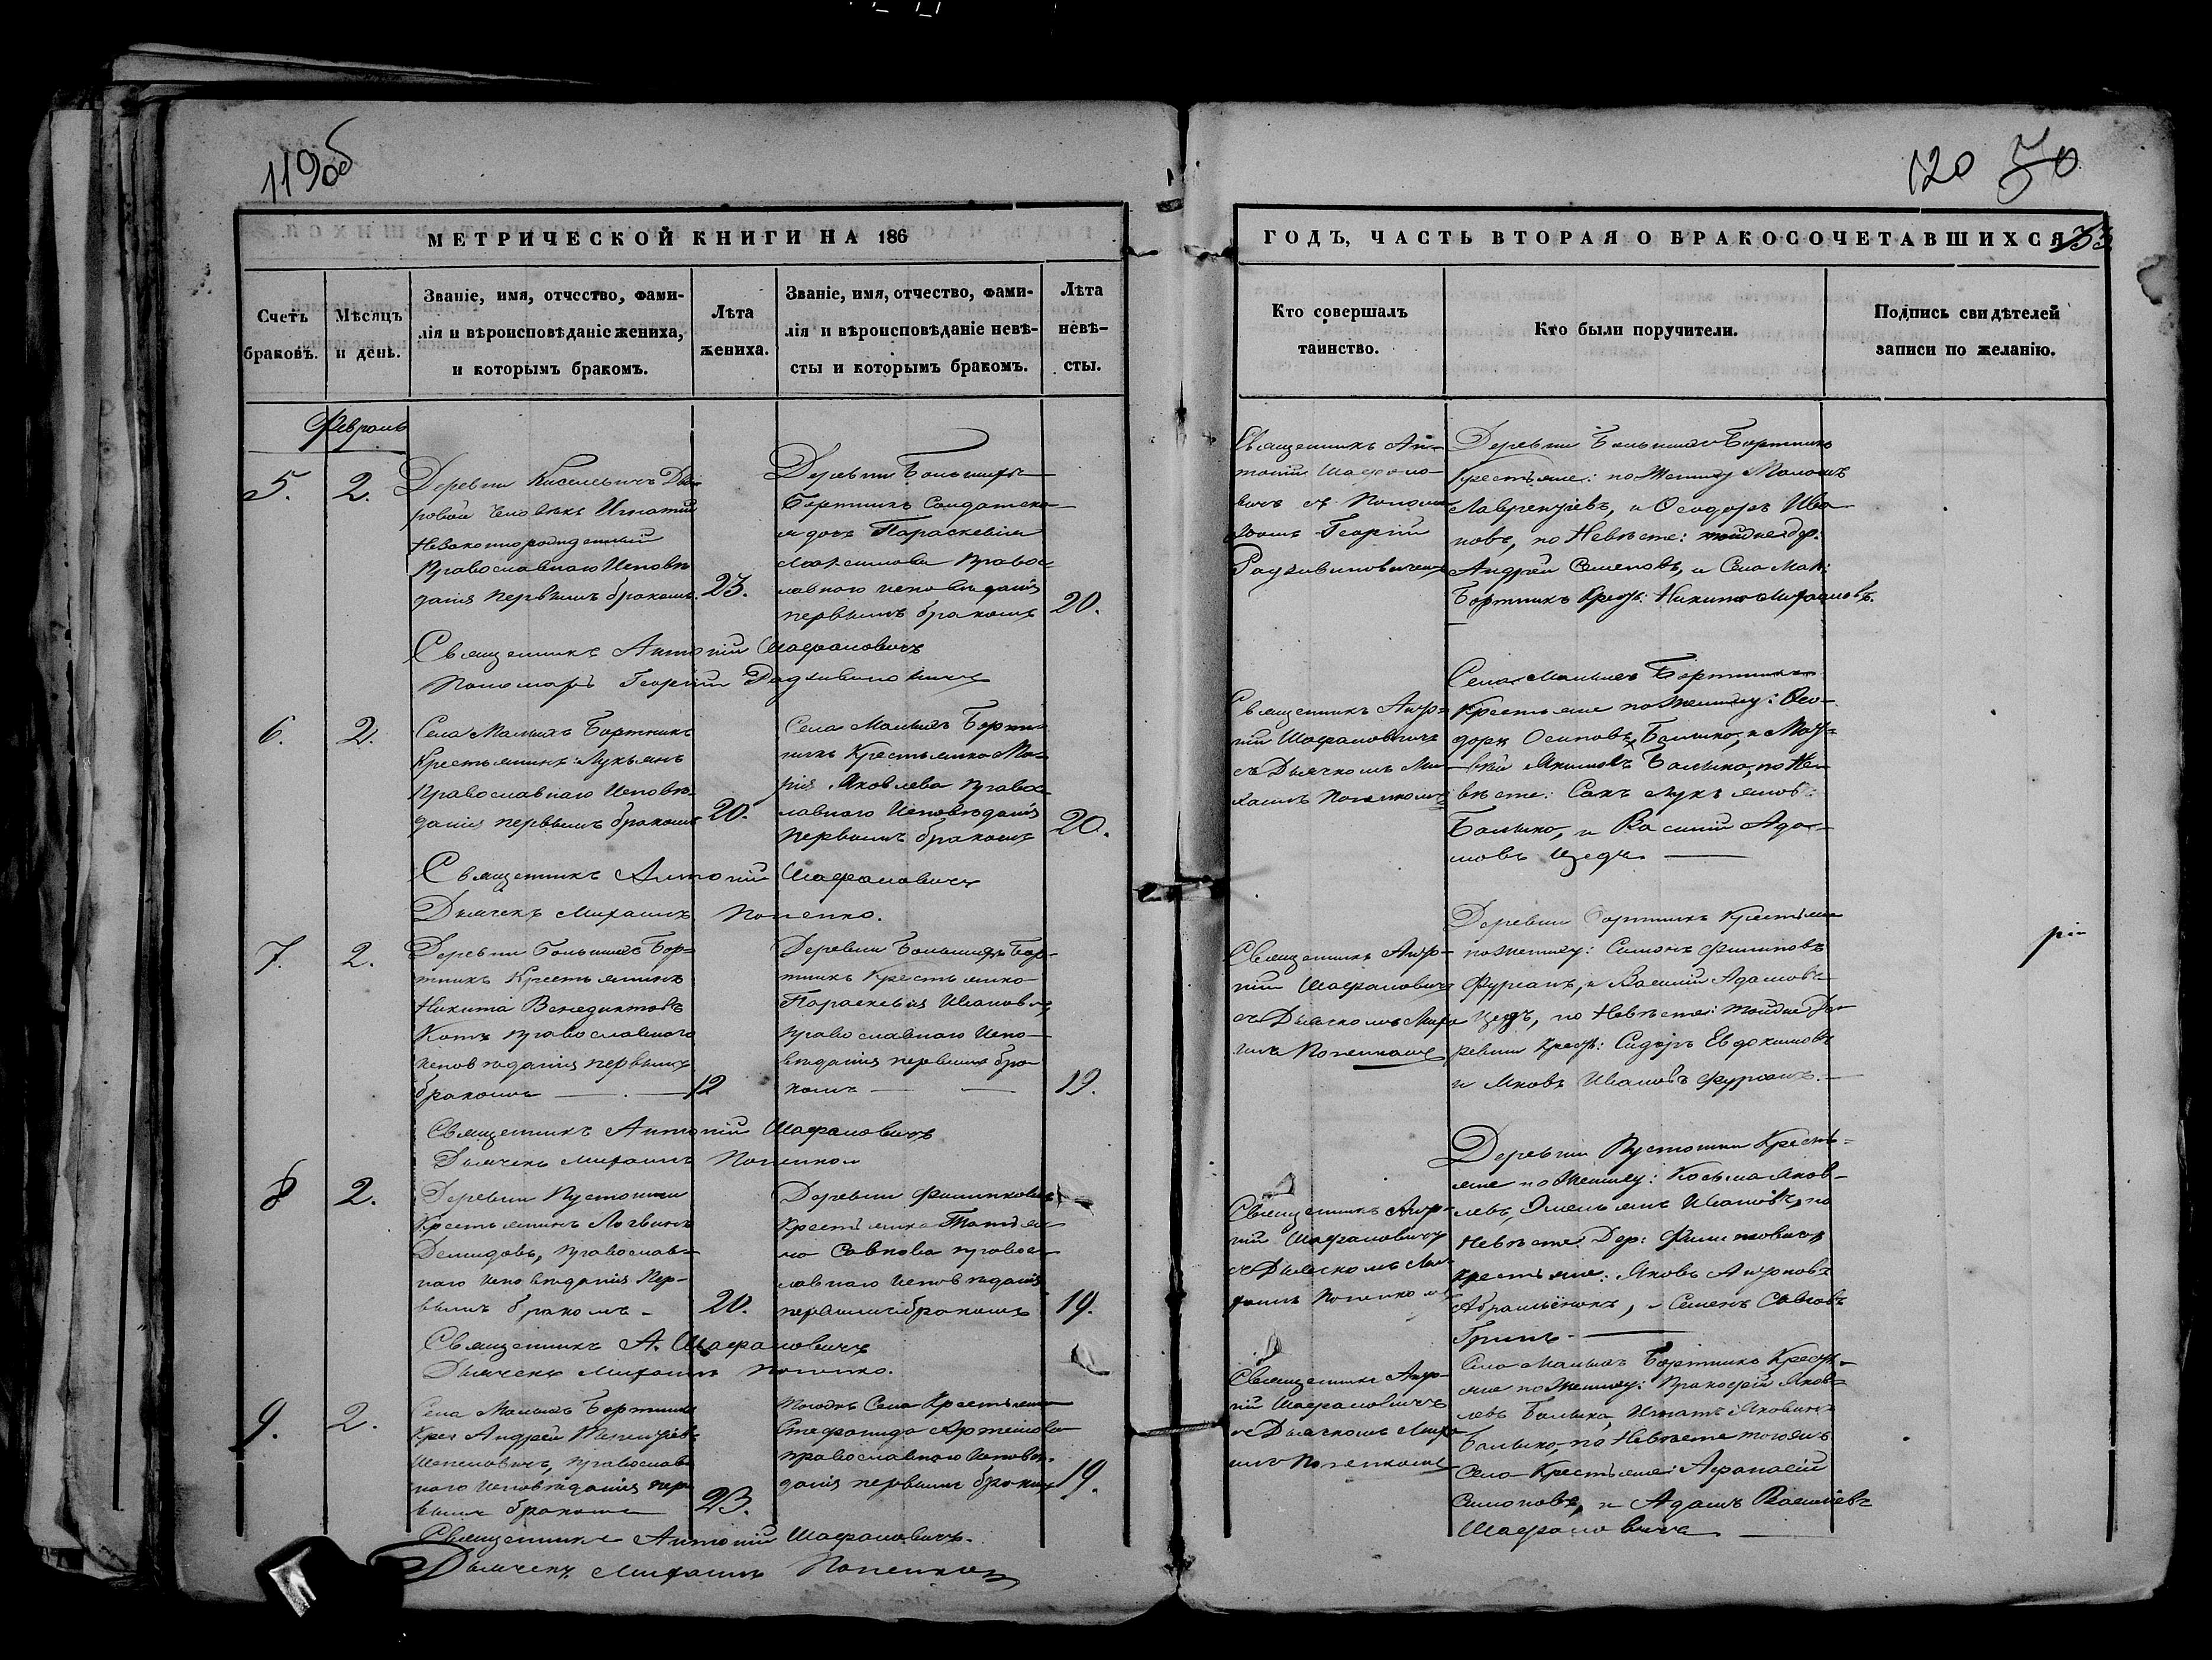 119об
МЕТРИЧЕСКОЙ КНИГИ НА 186
Счетъ браковъ.
Мѣсяцъ и день.
Званіе, имя, отчество, фами-
лія и вѣроисповѣданіе жениха,
и которымъ бракомъ.
Лѣта
жениха.
Званіе, имя, отчество, фами-
лія и вѣроисповѣданіе невѣ-
сты и которымъ бракомъ.
Лѣта
невѣ-
сты.
Февраль
5.
2.
Деревни Киселевичъ Дво-
ровой человѣкъ Игнатій
Незаконнорожденный
Православнаго Исповѣ
данія первымъ бракомъ.
23.
Деревни Большихъ
Бортникъ Солдатска
я дочь Параскевія
Максимова Правос
лавнаго исповѣданія
первымъ бракомъ
20.
Священникъ Антоній Шафрановичъ
Пономарь Георгій Радзивиновичъ
6.
2.
Села Малыхъ Бортникъ
Крестьянинъ: Лукьянъ
Православнаго Исповѣ-
данія первымъ бракомъ
20.
Села Малыхъ Бортн-
никъ Крестьянка Ма-
рія Яковлева Правос-
лавнаго Исповѣданія
первымъ бракомъ
20.
Священникъ Антоній Шафрановичъ
Дьячекъ Михаилъ Попенко.
7.
2.
Деревни Большихъ Бор-
тникъ Крестьянинъ
Никита Венедиктовъ
Котъ православнаго
исповѣданія первымъ
бракомъ
Деревни Большихъ Бор-
тникъ Крестьянка
Параскевія Иванова,
православнаго Испо-
вѣданія первымъ бра-
комъ
19.
Священникъ Антоній Шафрановичъ
Дьячекъ Михаилъ Попенко
8
2.
Деревни Пустошки
Крестьянинъ Логвинъ
Демидовъ, православ-
наго исповѣданія пер-
вымъ бракомъ
20.
Деревни Филипковичъ
Крестьянка Татья-
на Савкова правос-
лавнаго исповѣданія
первымъ бракомъ
19.
Священникъ А. Шафрановичъ
Дьячекъ Михаилъ Попенко.
9.
2.
Села Малыхъ Бортникъ
Крес Андрей
православ
наго исповѣданія пер
вымъ бракомъ
23.
Тогожъ Села Крестьянка
Стефанида Артемова
православнаго исповѣ-
данія первымъ бракомъ
19.
Священникъ Антоній Шафрановичъ.
Дьячекъ Михаилъ Попенко
120 50
ГОДЪ, ЧАСТЬ ВТОРАЯ О БРАКОСОЧЕТАВШИХСЯ
Кто совершалъ
таинство.
Кто были поручители.
Подпись свидѣтелей
записи по желанію.
Священникъ Ан-
тоній Шафрано-
вичъ съ Понома
ромъ Георгій
Радзивиновичемъ
Деревни Большихъ Бортникъ
Крестьяне: по Женихѣ
Лаврентіевъ, и Ѳеодоръ Ива
новъ, по Невѣсте: тойже др:
Андрей Семеновъ, и Села Мал:
Бортникъ Крест: Никита
Священникъ Анто-
ній Шафрановичъ
съ Дьячкомъ Ми-
хаилъ Попенкомъ
Села Малыхъ Бортникъ
Крестьяне по Жениху: Ѳео-
доръ Осиповъ Балыко, и Мат-
вѣй Якимовъ Балыко, по Не-
вѣсте: Сакъ Лукьяновъ
Балыко, и Василій Ада-
мовъ Цедъ.
Священникъ Анто-
ній Шафрановичъ
съ Дьячкомъ Миха
илъ Попенкомъ
Деревни Бортникъ Крестьяне
по Жениху: Симонъ Филиповъ
Фурсанъ, и Василій Адамовъ
Цедъ, по Невѣсте: тойже Де-
ревни Крест: Сидоръ Евдокимовъ
и Яковъ Ивановъ Фурсанъ.
Священникъ Анто-
ній Шафрановичъ
съ Дьячкомъ Ми-
хаилъ Попенкомъ
Деревни Пустошки Кресть-
яне по Жениху: Косьма Яков-
левъ, Емельянъ Ивановъ, по
Невѣсте: Дер: Филипковичъ
Крестьяне: Яковъ Антоновъ
Абрамёнокъ, и Семенъ Савковъ
Гринь.
Священникъ Анто-
ній Шафрановичъ
съ Дьячкомъ Миха
илъ Попенкомъ
Села Малыхъ Бортникъ Крестья-
яне по Жениху: Прокофій Яков-
левъ Балыко, Игнатъ
Балыко, по Невѣсте тогожъ
Села Крестьяне: Афанасій
Симоновъ, и Адамъ Васильевъ
Шафрановичъ